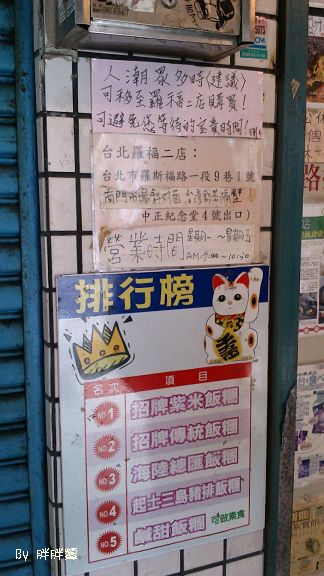 人潮眾多時(建議)
可移至羅福二店購買!
可避免您等待的宝貴時間!
台北羅福二店:
台北市羅斯福路一段9巷1號
中正紀念堂4號出口)
營業時間 星期一~星期五
AM:7:00~10:30
排行榜
名次 項目
NO.1 招牌紫米飯糰
NO.2 招牌傳統飯糰
NO.3 海陸總匯飯糰
NO.4 起士三島豬排飯糰
NO.5 鹹甜飯糰 可做素食
By 胖胖